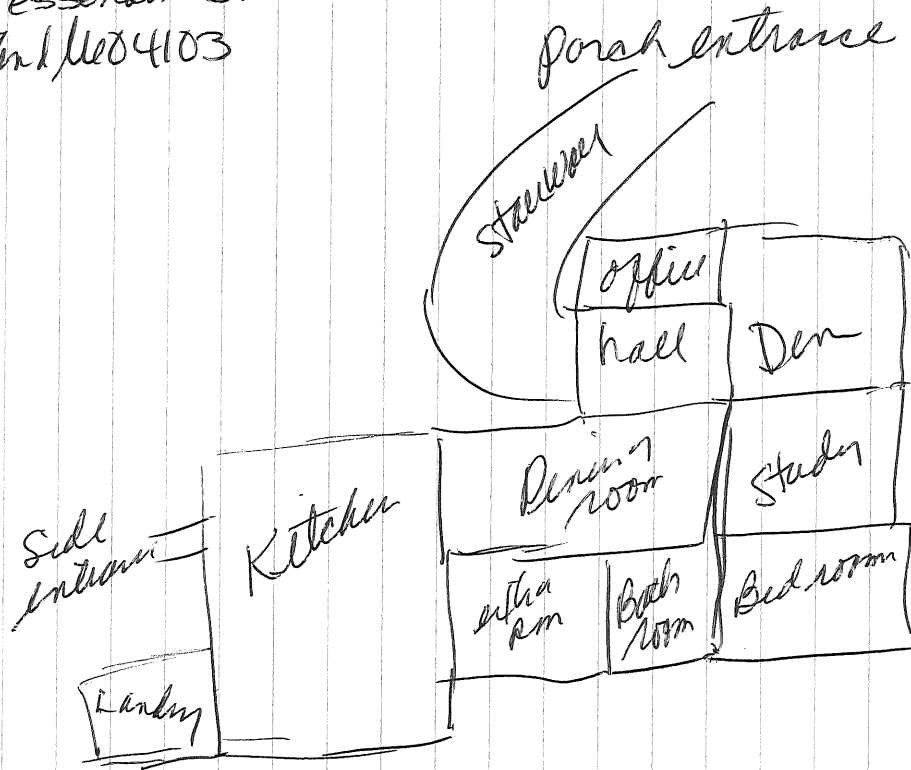 Me 04103
Porch entrance
Stairway
office
hall
Den
Dining
room
Study
Kitchen
Side
entrance
extra
rm
Bath
room
Bedroom
Landry